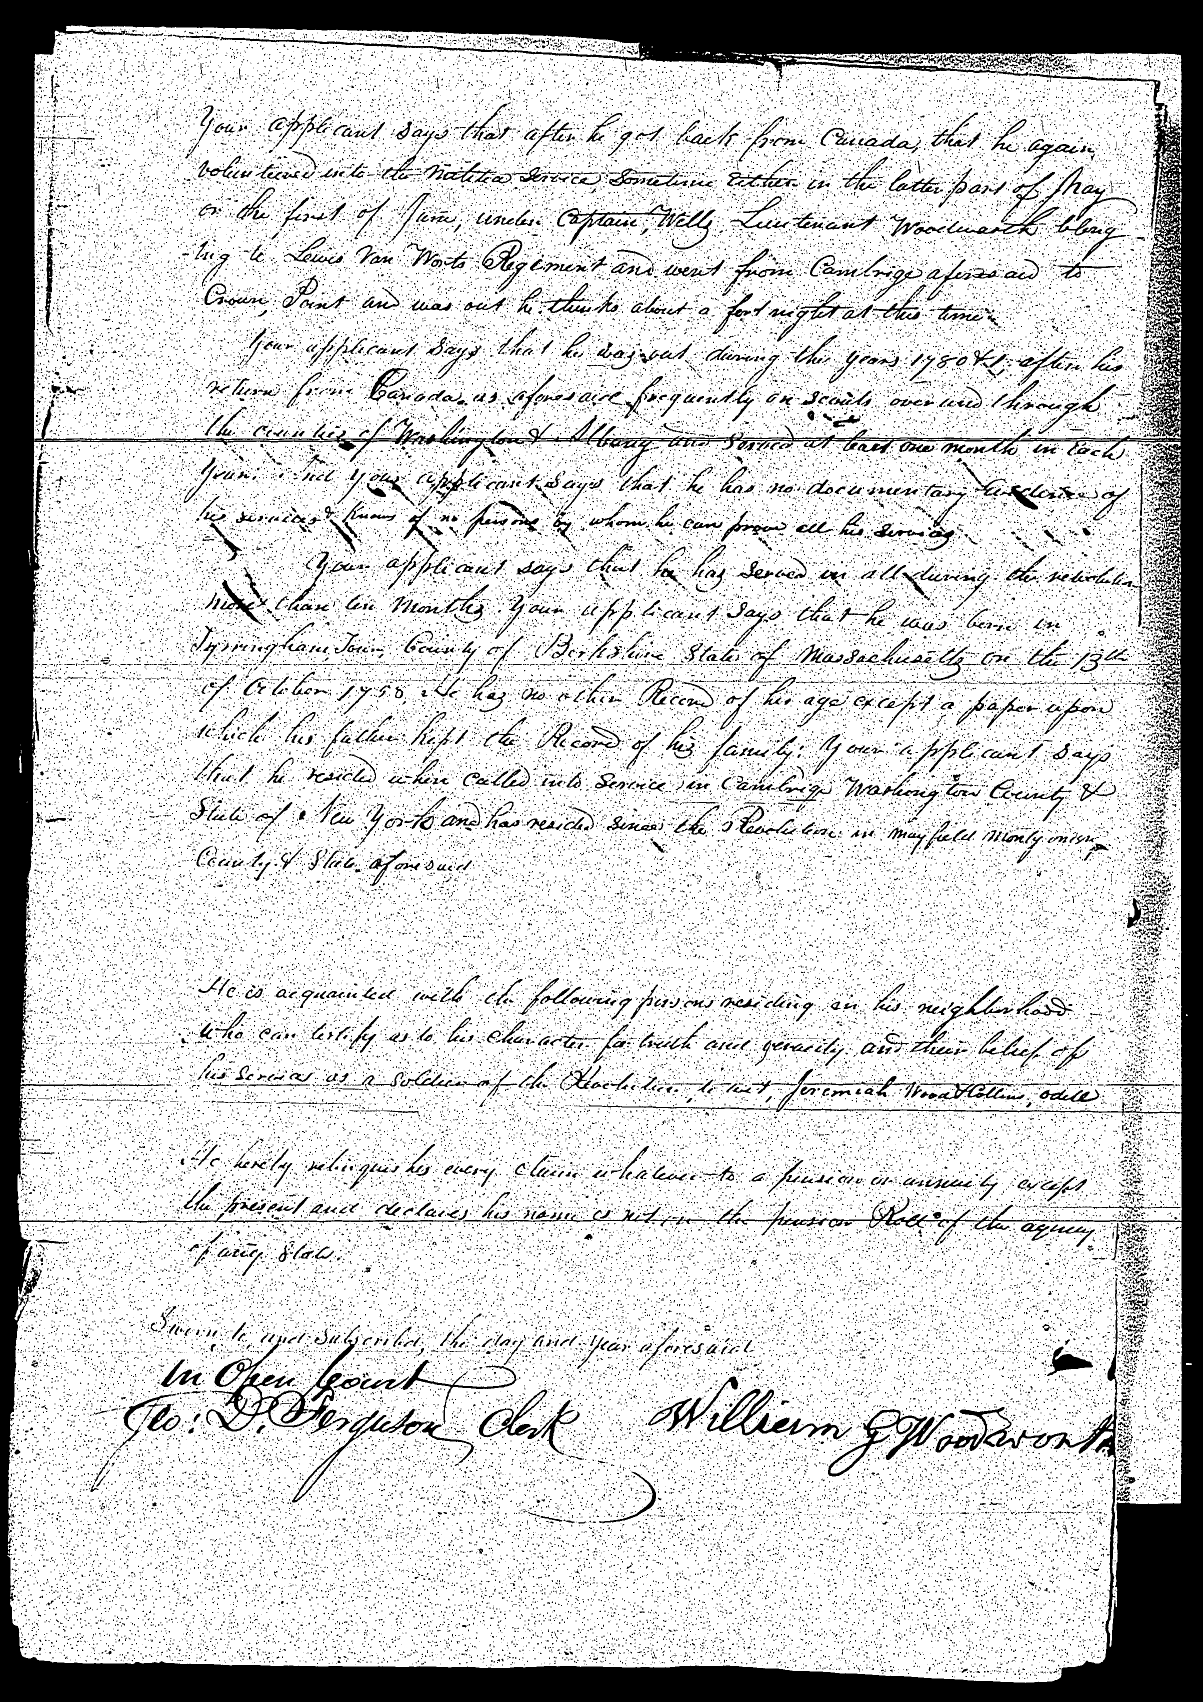 Your applicant says that after he got back from Canada, that he again
volunteered into the Militia Service, Sometime Either in the latter part of May
or the first of June, under Captain Wells, Lieutenant Woodworth belong
-ing to Lewis Van Worts Regiment and went from Cambrige aforesaid to
Crown Point and was out he thinks about a fortnight at this time
Your applicant says that he was out during the years 1780 & 1, after his
return from Canada as aforesaid frequently on scouts over and through
the counties of Washington & Albany and Served at least one month in Each
Year. And your applicant says that he has no documentary Evidence of
his services & knows of no persons by whom he can prove all his services
Your applicant says that he has served in all during the revolution
more than ten months. Your applicant says that he was born in
Tyrringham Town, County of Berkshire State of Massachusetts on the 13th
of October 1758, He has no other Record of his age except a paper upon
which his father kept the Record of his family: Your applicant says
that he resided when called into Service in Cambrige Washington County &
State of New York and has resided since the Revolution in mayfield
County & State aforesaid
He is acquainted with the following persons residing in his neighborhood
who can testify as to his character for truth and veracity and their belief of
his Services as a Soldier of the Revolution, to wit, Jeremiah Wood & Collins, odell
He hereby relinquishes every claim whatever to a pension or annuity except
the present and declares his name is not on the pension Roll of the agency
of any State.
Sworn to and Subscribed, the day and year aforesaid
in Open Court
Geo: D. Ferguson Clerk William G Woodworth